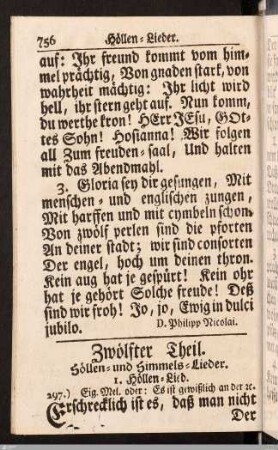 756 Höllen-Lieder.
auf: Ihr freund kommt vom him-
mel prächtig, Von gnaden stark, von
wahrheit mächtig: Ihr licht wird
hell, ihr stern geht auf. Nun komm,
du werthe kron! HErr JEsu, GOt-
tes Sohn! Hosianna! Wir folgen
all Zum freuden-saal, Und halten
mit das Abendmahl.
3. Gloria sey dir gesungen, Mit
menschen- und englischen zungen,
Mit harffen und mit cymbeln schon.
Von zwölf perlen sind die pforten
An deiner stadt; wir sind consorten
Der engel, hoch um deinen thron.
Kein aug hat je gespürt! Kein ohr
hat je gehört Solche freude! Deß
sind wir froh! Jo, jo, Ewig in dulci
jubilo. D. Philipp Nicolai.
Zwölfter Theil.
Höllen- und Himmels-Lieder.
1. Höllen-Lied.
297.) Eig. Mel. oder: Es ist gewißlich an der ꝛc.
Erschrecklich ist es, daß man nicht
Der